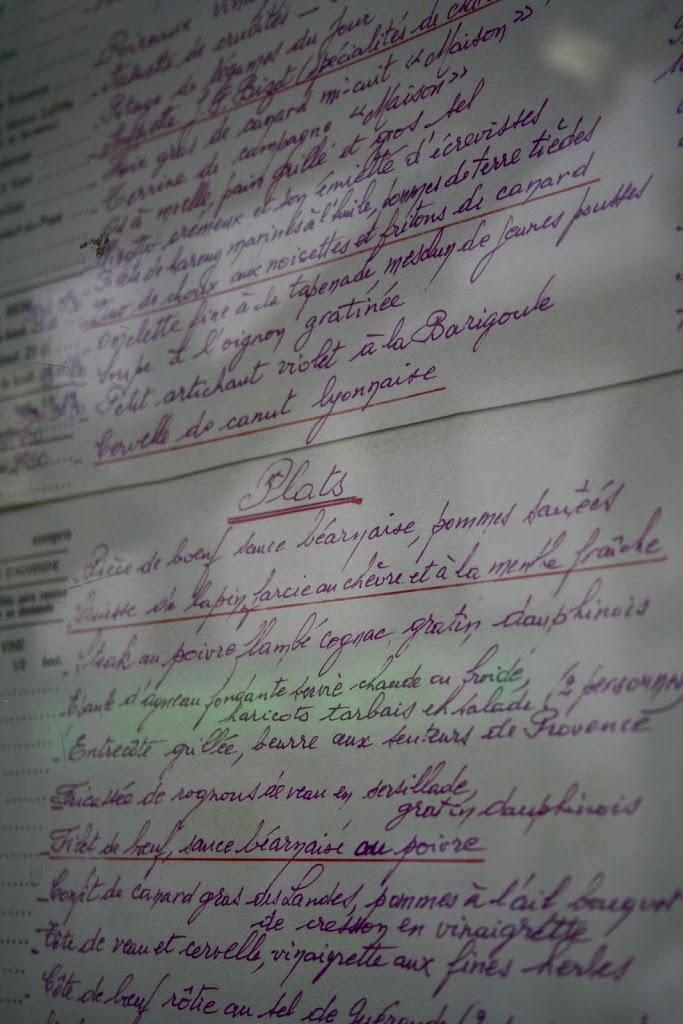 Poireaux
Assiette de crudités
Potage de légumes du jour
Assiette J.F. Bizot (spécialités de
Foie gras de canard mi-cuit « Maison »
Terrine de campagne « Maison »
Os à moelle, pain grillé et gros sel
Risotto crémeux et son émietté d'écrevisses
Filets de hareng marinés à l'huile, pommes de terre tièdes
de choux aux noisettes et fritons de canard
Omelette fine à la tapenade, mesclun de jeunes pousses
Soupe à l'oignon gratinée
Petit artichaut violet à la Barigoule
Cervelle de canut lyonnaise
Plats
compris
Pièce de bœuf sauce béarnaise, pommes sautées
Cuisse de lapin farcie au chèvre et à la menthe fraîche
VINS
1/2 bout.
Steak au poivre flambé cognac, gratin dauphinois
Epaule d'agneau fondante servie chaude ou froide,
haricots tarbais en salade (2 personnes)
Entrecôte grillée, beurre aux senteurs de Provence
Fricassée de rognons de veau en persillade,
gratin dauphinois
Filet de bœuf, sauce béarnaise au poivre
Confit de canard gras des Landes, pommes à l'ail bouquet
de cresson en vinaigrette
Tête de veau et cervelle, vinaigrette aux fines herbes
Côte de bœuf rôtie au sel de Guérande (2